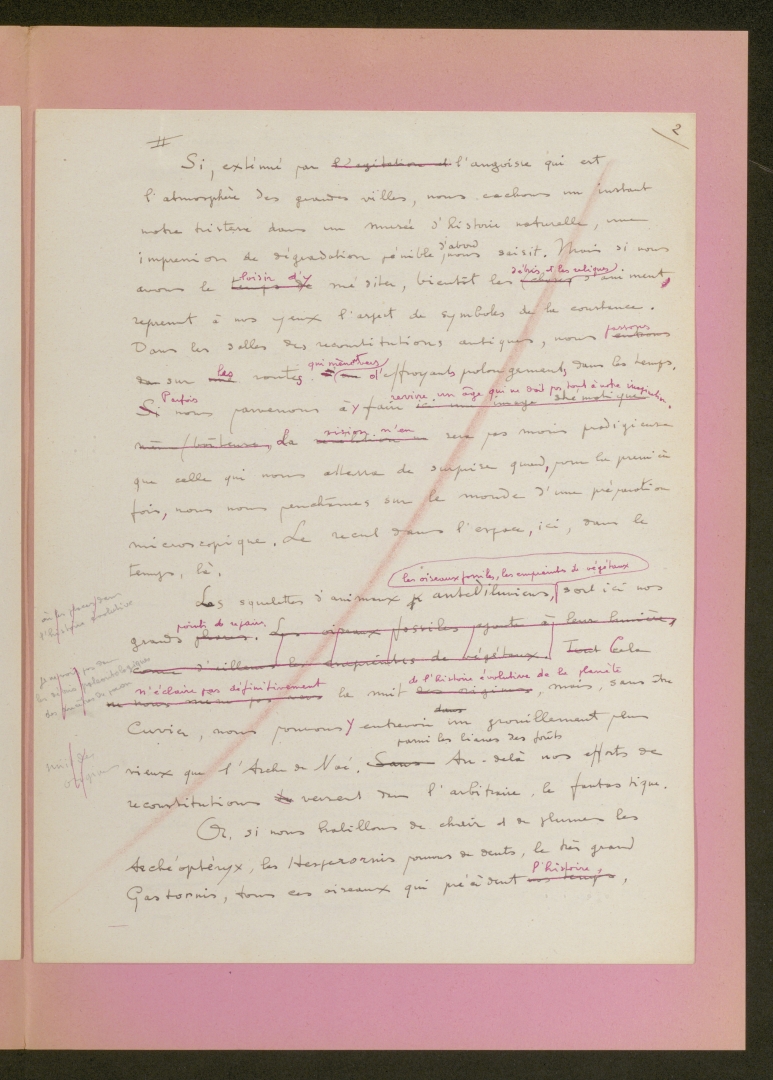 2
#
Si, exténué par l'agitation et l'angoisse qui est
l'atmosphère des grandes villes, nous cachons un instant
notre tristesse dans un musée d'histoire naturelle, une
impression de dégradation pénible, d'abord nous saisit. Mais si nous
avons le temps de loisir d'y méditer, bientôt les choses débris et les reliques s'animent,
reprennent à nos yeux l'aspect de symboles de la constance.
Dans les salles des reconstitutions antiques, nous entrons passons
sur les routes qui mènent vers d'effroyants prolongements dans les temps.
Si Parfois nous parvenons à y faire revivre un âge qui ne doit pas tout à notre imagination
La vision n'en sera pas moins prodigieuse
que celle qui nous atterra de surprise quand, pour la première
fois, nous nous penchâmes sur le monde d'une préparation
microscopique. Le recul dans l'espace, ici, dans le
temps, là.
les oiseaux fossiles, les empreintes de végétaux
Les squelettes d'animaux antédiluviens, sont ici nos
grands phares. points de repaire. Les oiseaux fossiles ajoute à leur lumière,
comme d'ailleurs les empreintes de végétaux. Tout Cela
n'éclaire pas définitivement la nuit des origines, de l'histoire évolutive de la planète mais, sans être
Cuvier, nous pouvons y entrevoir dans un grouillement plus
vieux que l'Arche de Noé. parmi les lianes des forêts Sans Au-delà nos efforts de
reconstitutions versent dans l'arbitraire, le fantastique.
Or, si nous habillons de chair et de plumes les
Archéoptéryx, les Hesperornis pourvus de dents, le très grand
Gastornis, tous ces oiseaux qui précèdent nos temps l'histoire,